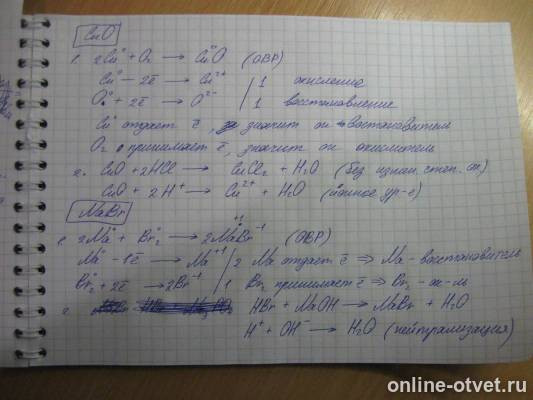 CuO
1. 2Cu⁰ + O₂ → Cu⁰O (ОВР)
Cu⁰ − 2ē → Cu²⁺ | 1 окисление
O₂⁰ + 2ē → O²⁻ | 1 восстановление
Cu⁰ отдает ē, значит он востановитель
O₂ принимает ē, значит он окислитель
2. CuO + 2HCl → CuCl₂ + H₂O (без измен. степ. ок.)
CuO + 2H⁺ → Cu²⁺ + H₂O (ионное ур-е)
NaBr
1. 2Na⁰ + Br₂⁰ → 2Na⁺¹Br⁻¹ (ОВР)
Na⁰ − 1ē → Na⁺¹ | 2 Na отдает ē ⇒ Na - восстановитель
Br₂⁰ + 2ē → 2Br⁻¹ | 1 Br₂ принимает ē ⇒ Br₂ - ок-ль
2. HBr + NaOH → NaBr + H₂O
H⁺ + OH⁻ → H₂O (нейтрализация)
online-otvet.ru